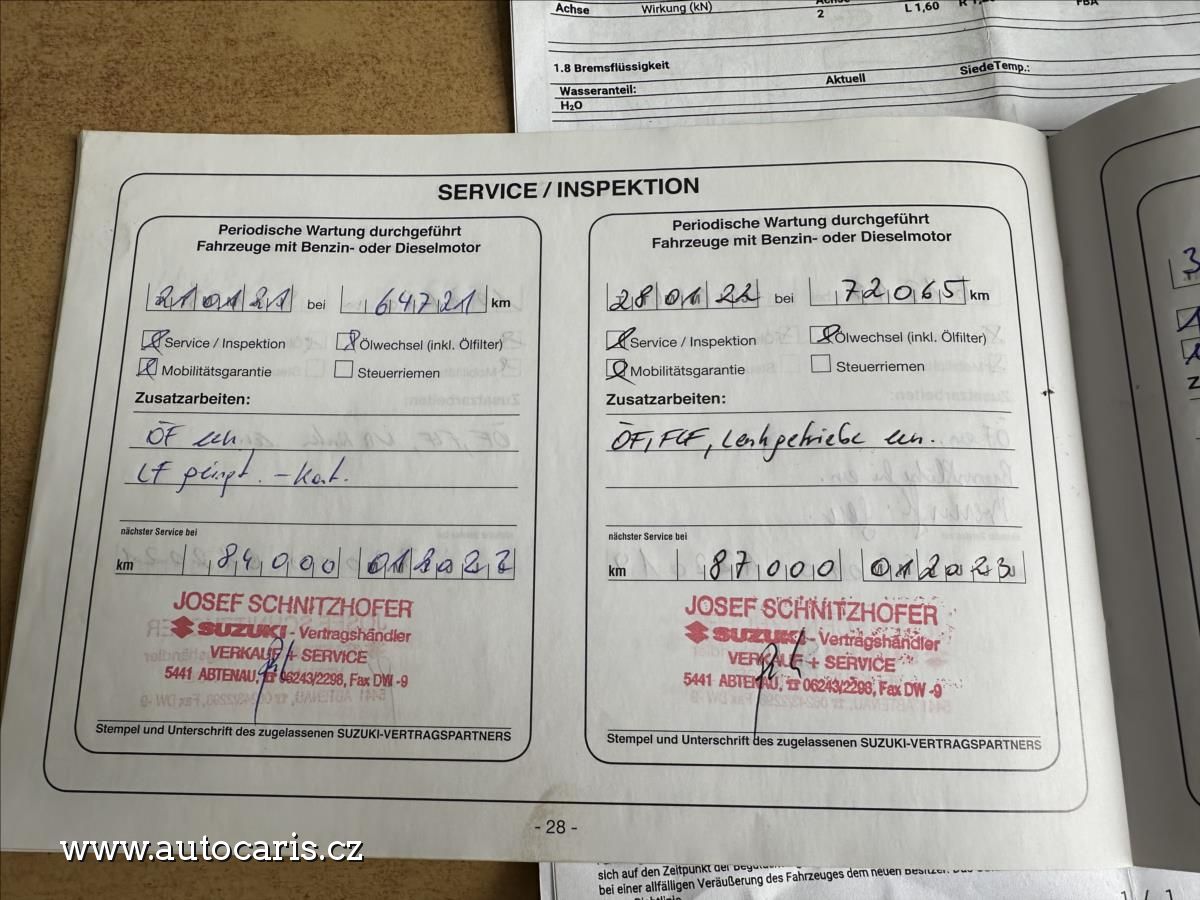 Achse Wirkung (kN) 2 L 1,60
1.8 Bremsflüssigkeit
Wasseranteil: Aktuell SiedeTemp.:
H2O
SERVICE / INSPEKTION
Periodische Wartung durchgeführt
Fahrzeuge mit Benzin- oder Dieselmotor
210121 bei 64721 km
Service / Inspektion Ölwechsel (inkl. Ölfilter)
Mobilitätsgarantie Steuerriemen
Zusatzarbeiten:
ÖF
LF
nächster Service bei
km 84000 012022
JOSEF SCHNITZHOFER
SUZUKI - Vertragshändler
VERKAUF + SERVICE
5441 ABTENAU, ☎ 06243/2298, Fax DW -9
Stempel und Unterschrift des zugelassenen SUZUKI-VERTRAGSPARTNERS
Periodische Wartung durchgeführt
Fahrzeuge mit Benzin- oder Dieselmotor
280122 bei 72065 km
Service / Inspektion Ölwechsel (inkl. Ölfilter)
Mobilitätsgarantie Steuerriemen
Zusatzarbeiten:
ÖF, FLF, Lenkgetriebe
nächster Service bei
km 87000 012023
JOSEF SCHNITZHOFER
SUZUKI - Vertragshändler
VERKAUF + SERVICE
5441 ABTENAU, ☎ 06243/2298, Fax DW -9
Stempel und Unterschrift des zugelassenen SUZUKI-VERTRAGSPARTNERS
- 28 -
www.autocaris.cz
sich auf den Zeitpunkt der
bei einer allfälligen Veräußerung des Fahrzeuges dem neuen Besitzer.
1 / 1